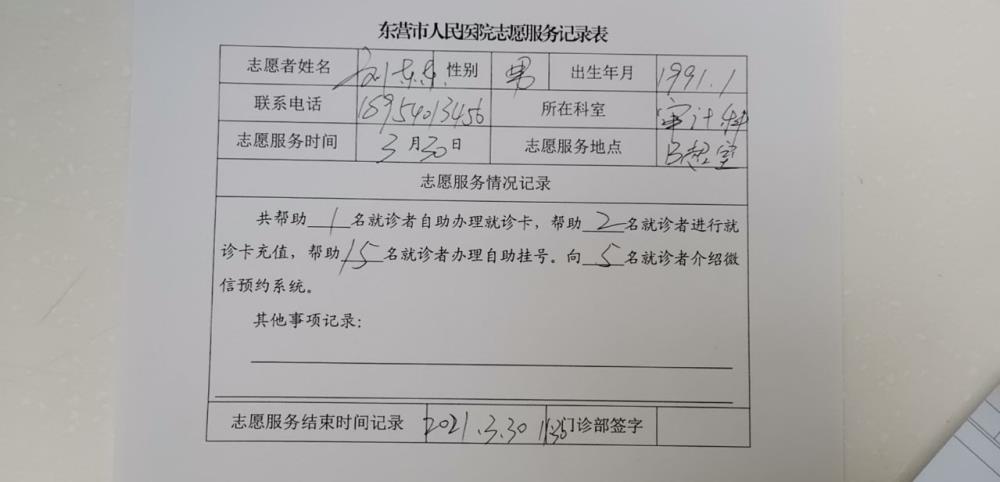 东营市人民医院志愿服务记录表
志愿者姓名 刘东东 性别 男 出生年月 1991.1
联系电话 18954013456 所在科室 审计科
志愿服务时间 3月30日 志愿服务地点 B超室
志愿服务情况记录
共帮助1名就诊者自助办理就诊卡，帮助2名就诊者进行就
诊卡充值，帮助15名就诊者办理自助挂号。向5名就诊者介绍微
信预约系统。
其他事项记录：
志愿服务结束时间记录 2021.3.30 11:35 门诊部签字